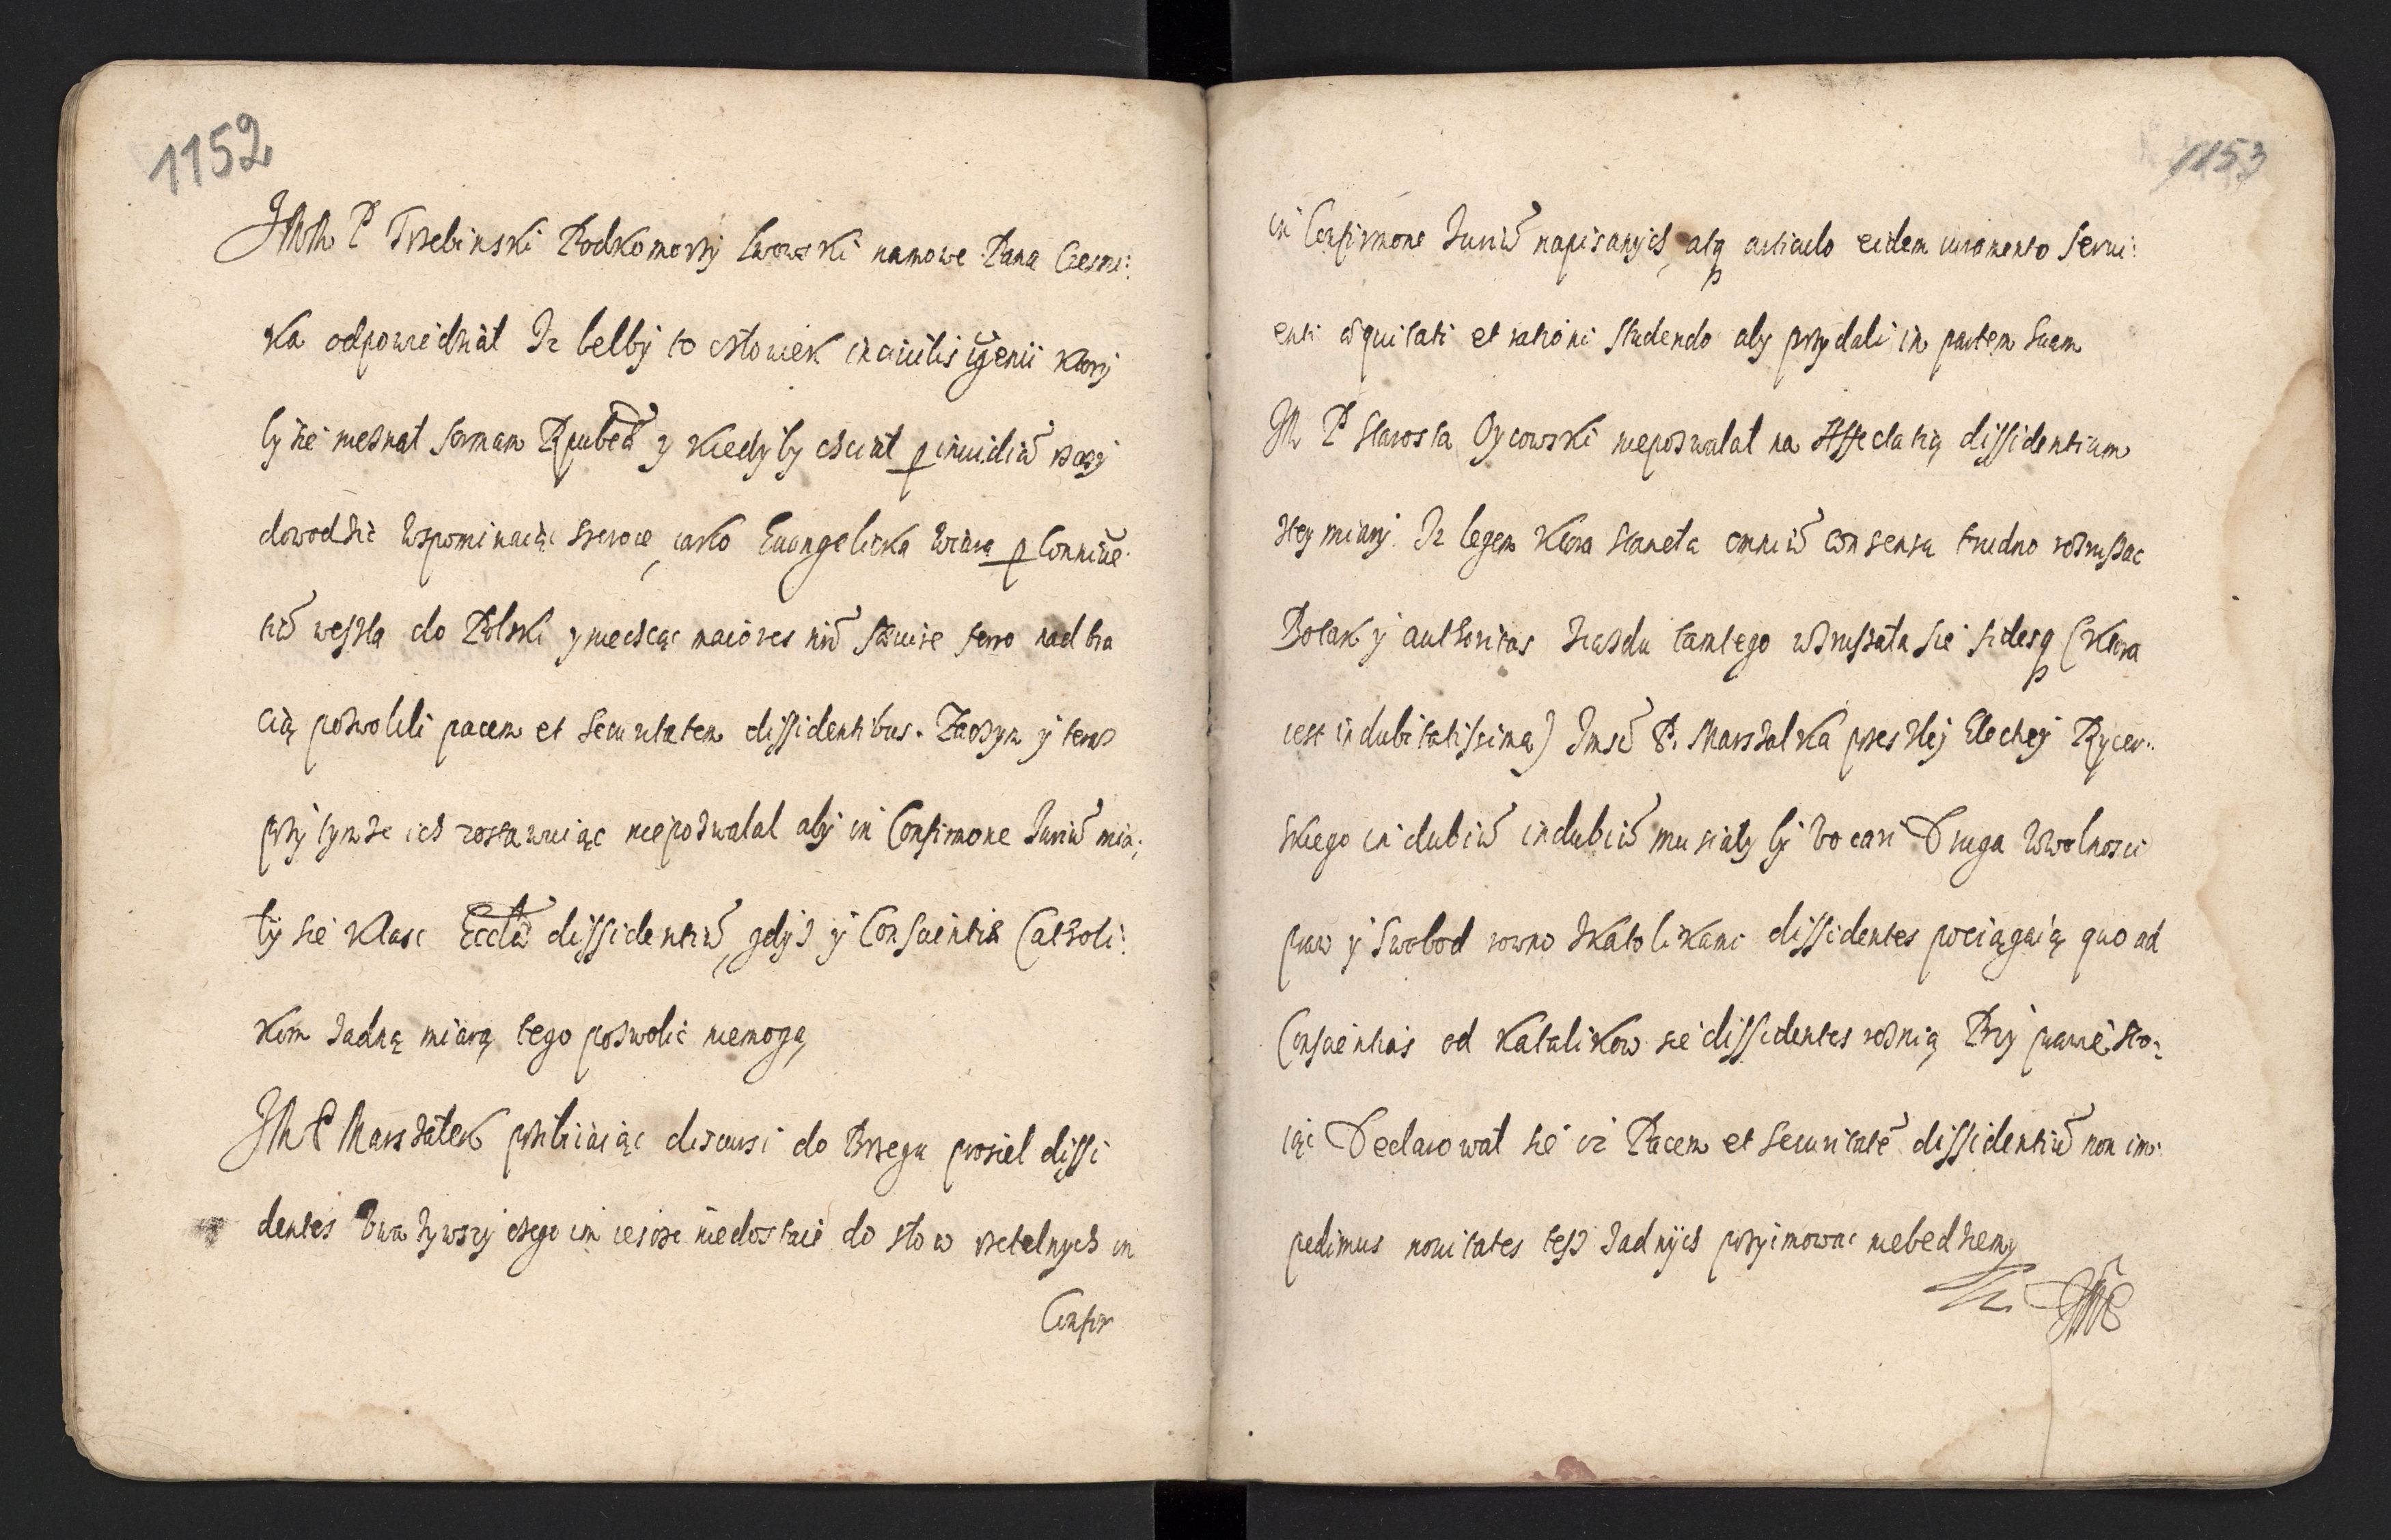 1152
JMM P Trzebinski Podkomorzÿ Lwowski namowe Pana Czesni:
ka odpowiedział Iz belbÿ to człowiek inciuilis ingenii ktorÿ
bÿ sie nieznał formam Rpublcae y kiedyby chciał p inuidiũ rzeczÿ
dowodzic wspominaiąc szeroce, iako Euangelicka wiara p Conniue
tiũ weszła do Polski y niechcąc maiores nrĩ saeuire ferro nad bra
cią pozwolili pacem et securitatem dissidentibus. Zaczym ÿ teraz
przÿ tymze ich zostawuiąc niepozwalal abÿ in Confirmone Iuriũ mia:
łÿ sie klasc Eccla dissidentiũ, gdÿz ÿ Conscientia Catholi:
kom zadną miarą tego pozwolic niemogą
JM P Marszałek przibiiaiąc discursi do Brzegu prosiel dissi
dentes Uwazÿwszÿ czego im ieszce niedostaie do słow rzetelnych in
Confir
1153
in Confirmone Iuriũ napisanÿch, atq articulo eidem iuramento serui:
enti aequitati et rationi studendo aby przydali in partem suam
JM P Starosta Oycowski niepozwalał na Affectatią dissidentium
stey miary. Iz legem ktora stancta omniũ consensu trudno wzruszac
Bo tak ÿ authoritas ziazdu tamtego wzruszała sie fidesq (ktora
iest indubitatissima) Imsci P. Marszalka przeszlej Elechej Rycer:
skiego in dubiũ indubiũ musiałÿ bÿ vocari Druga Wwolnosci
praw ÿ Swobod rowno zkatolikami dissidentes pociągaią quo ad
Conscientias od Katalikow sie dissidentes roznią Przÿ prawie sto:
iąc Declarował sie iz Pacem et securitatẽ dissidentiũ non im:
pedimus nouitates tesz zadnÿch przyimowac niebedziemy
JMP